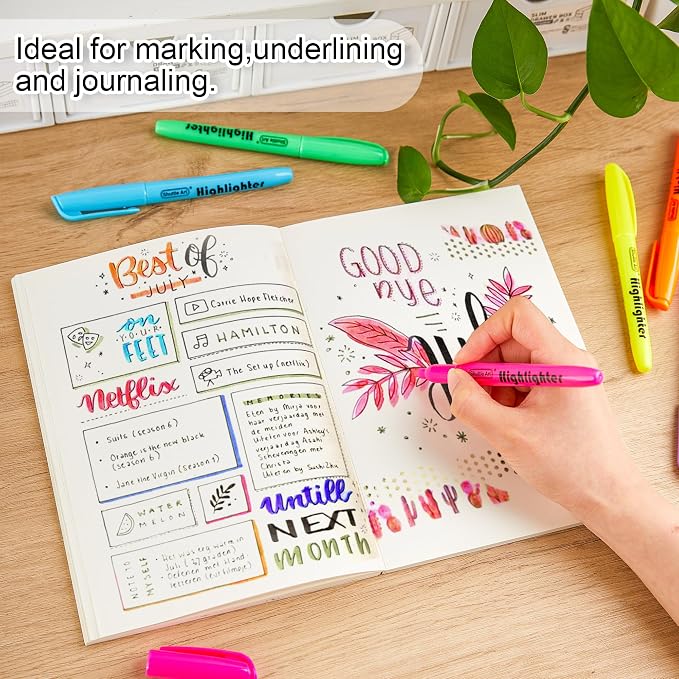 Ideal for marking,underlining
and journaling.
Shuttle Art Highlighter
Shuttle Art Highlighter
Highlighter
Highlighter
Best of
JULY
on
YOUR
FEET
Carrie Hope Fletcher
HAMILTON
The Set up (netflix)
Netflix
• Suits (season 6)
• Orange is the new black
(season 6)
• Jane the Virgin (Season 1)
MEMORIES
Eten by Mirja voor
haar verjaardag met
de meiden
Uiteten voor Ashley's
verjaardag Asahi
Scheveningen met
Christa
Uiteten by Sushi2ku
WATER
MELON
NOTE TO
MYSELF
• Het was erg warm in
Juli (37 graden)
• Oefenen met Hand
letteren (earfilmpje)
Untill
NEXT
MONTH
GOOD
BYE
July
Shuttle Art Highlighter